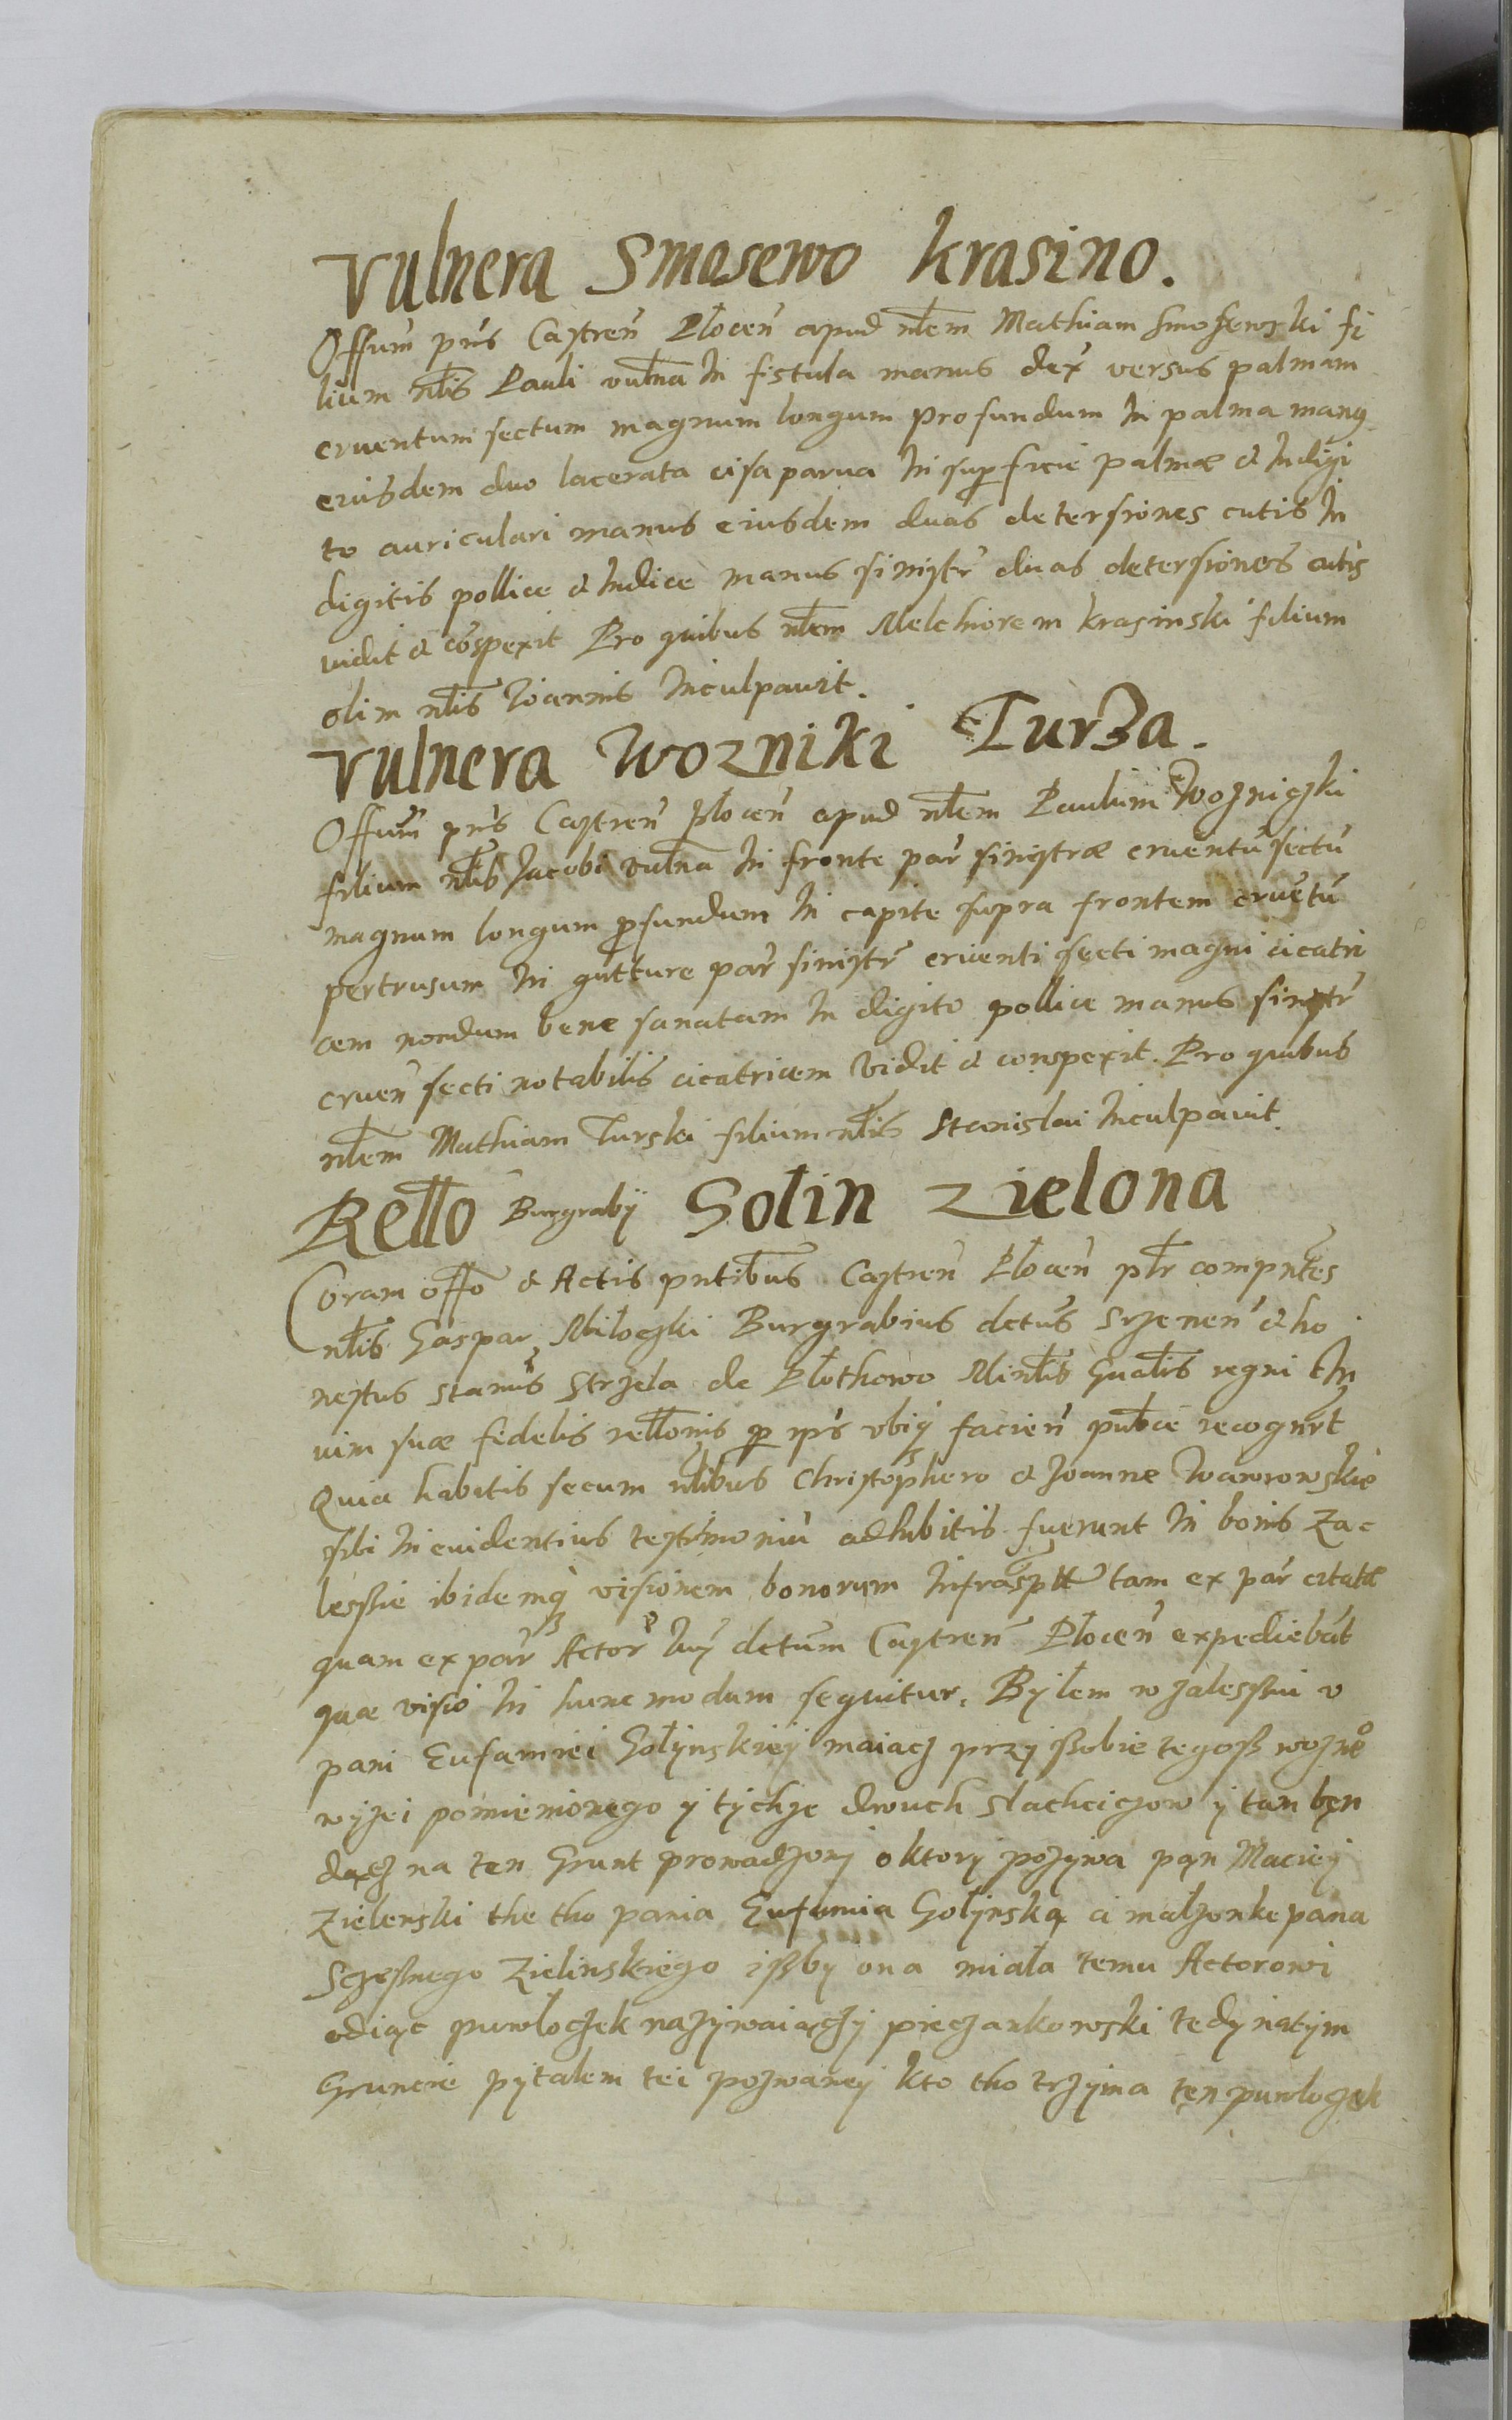 Vulnera Smosewo Krasino.
Offum pns Castren Plocen apud nlem Mathiam Smosewski fi
lium nlis Pauli vulna In fistula manus dex versus palmam
cruentum sectum magnum longum profundum In palma manq
eiusdem duo lacerata cisa parua In superficie palmæ & Indigi
to auriculari manus eiusdem duas detersiones cutis In
digitis pollice & Indice manus sinistr duas detersiones cutis
vidit & cospexit Pro quibus nlem Melchiorem Krasinski filium
olim nlis Joannis Inculpauit.
Vulnera Wozniki Turza.
Offum pns Castren Plocen apud nlem Paulum Wozniczki
filium nlis Jacobi vulna In fronte par sinistræ cruentu sectu
magnum longum profundum In capite supra frontem cruetu
pertrusum In gutture par sinistr cruenti secti magni cicatri
cem nondum bene sanatam In digito pollice manus sinistr
cruen secti notabilis cicatricem vidit & conspexit. Pro quibus
nlem Mathiam Turski filium nlis Stanislai Inculpauit.
Rello Burgrabij Golin Zielona
Coram offo & Actis pntibus Castren Plocen plr compntes
nlis Gaspar Miloczki Burgrabius dctus Srzenen & ho
nestus stanus Strzela de Plothowo Minlis Gnalis regni
vim suæ fidelis rellonis per ips vbiq facien publce recognrt
Quia habitis secum nlibus Christophero & Joanne Wawrowskie
sibi In euidentius testimoniu adhibitis fuerunt In bonis Za-
lessie ibidemq visionem bonorum Infraspt tam ex par citatæ
quam ex par Actor huj dctum Castren Plocen expediebat
quæ visio In hunc modum sequitur. Byłem w zalessiu v
pani Eufamiei Gołynskiey maiacz przy ssobie tegoss wozne
wyzei pomienionego y tychze dwuch slachciczow y tam bęn
dącz na ten Grunt prowadzony o ktory pozywa pąn Maciey
Zielenski the tho pania Eufamia Gołynską a małzonke pana
Sczesnego Zielinskiego issby ona miała temu Actorowi
odiąc puwłoczek nazywaiączy pieczankowski tedy natym
Gruncie pytalem tei pozwaney kto tho trzyma tęn puwloczek